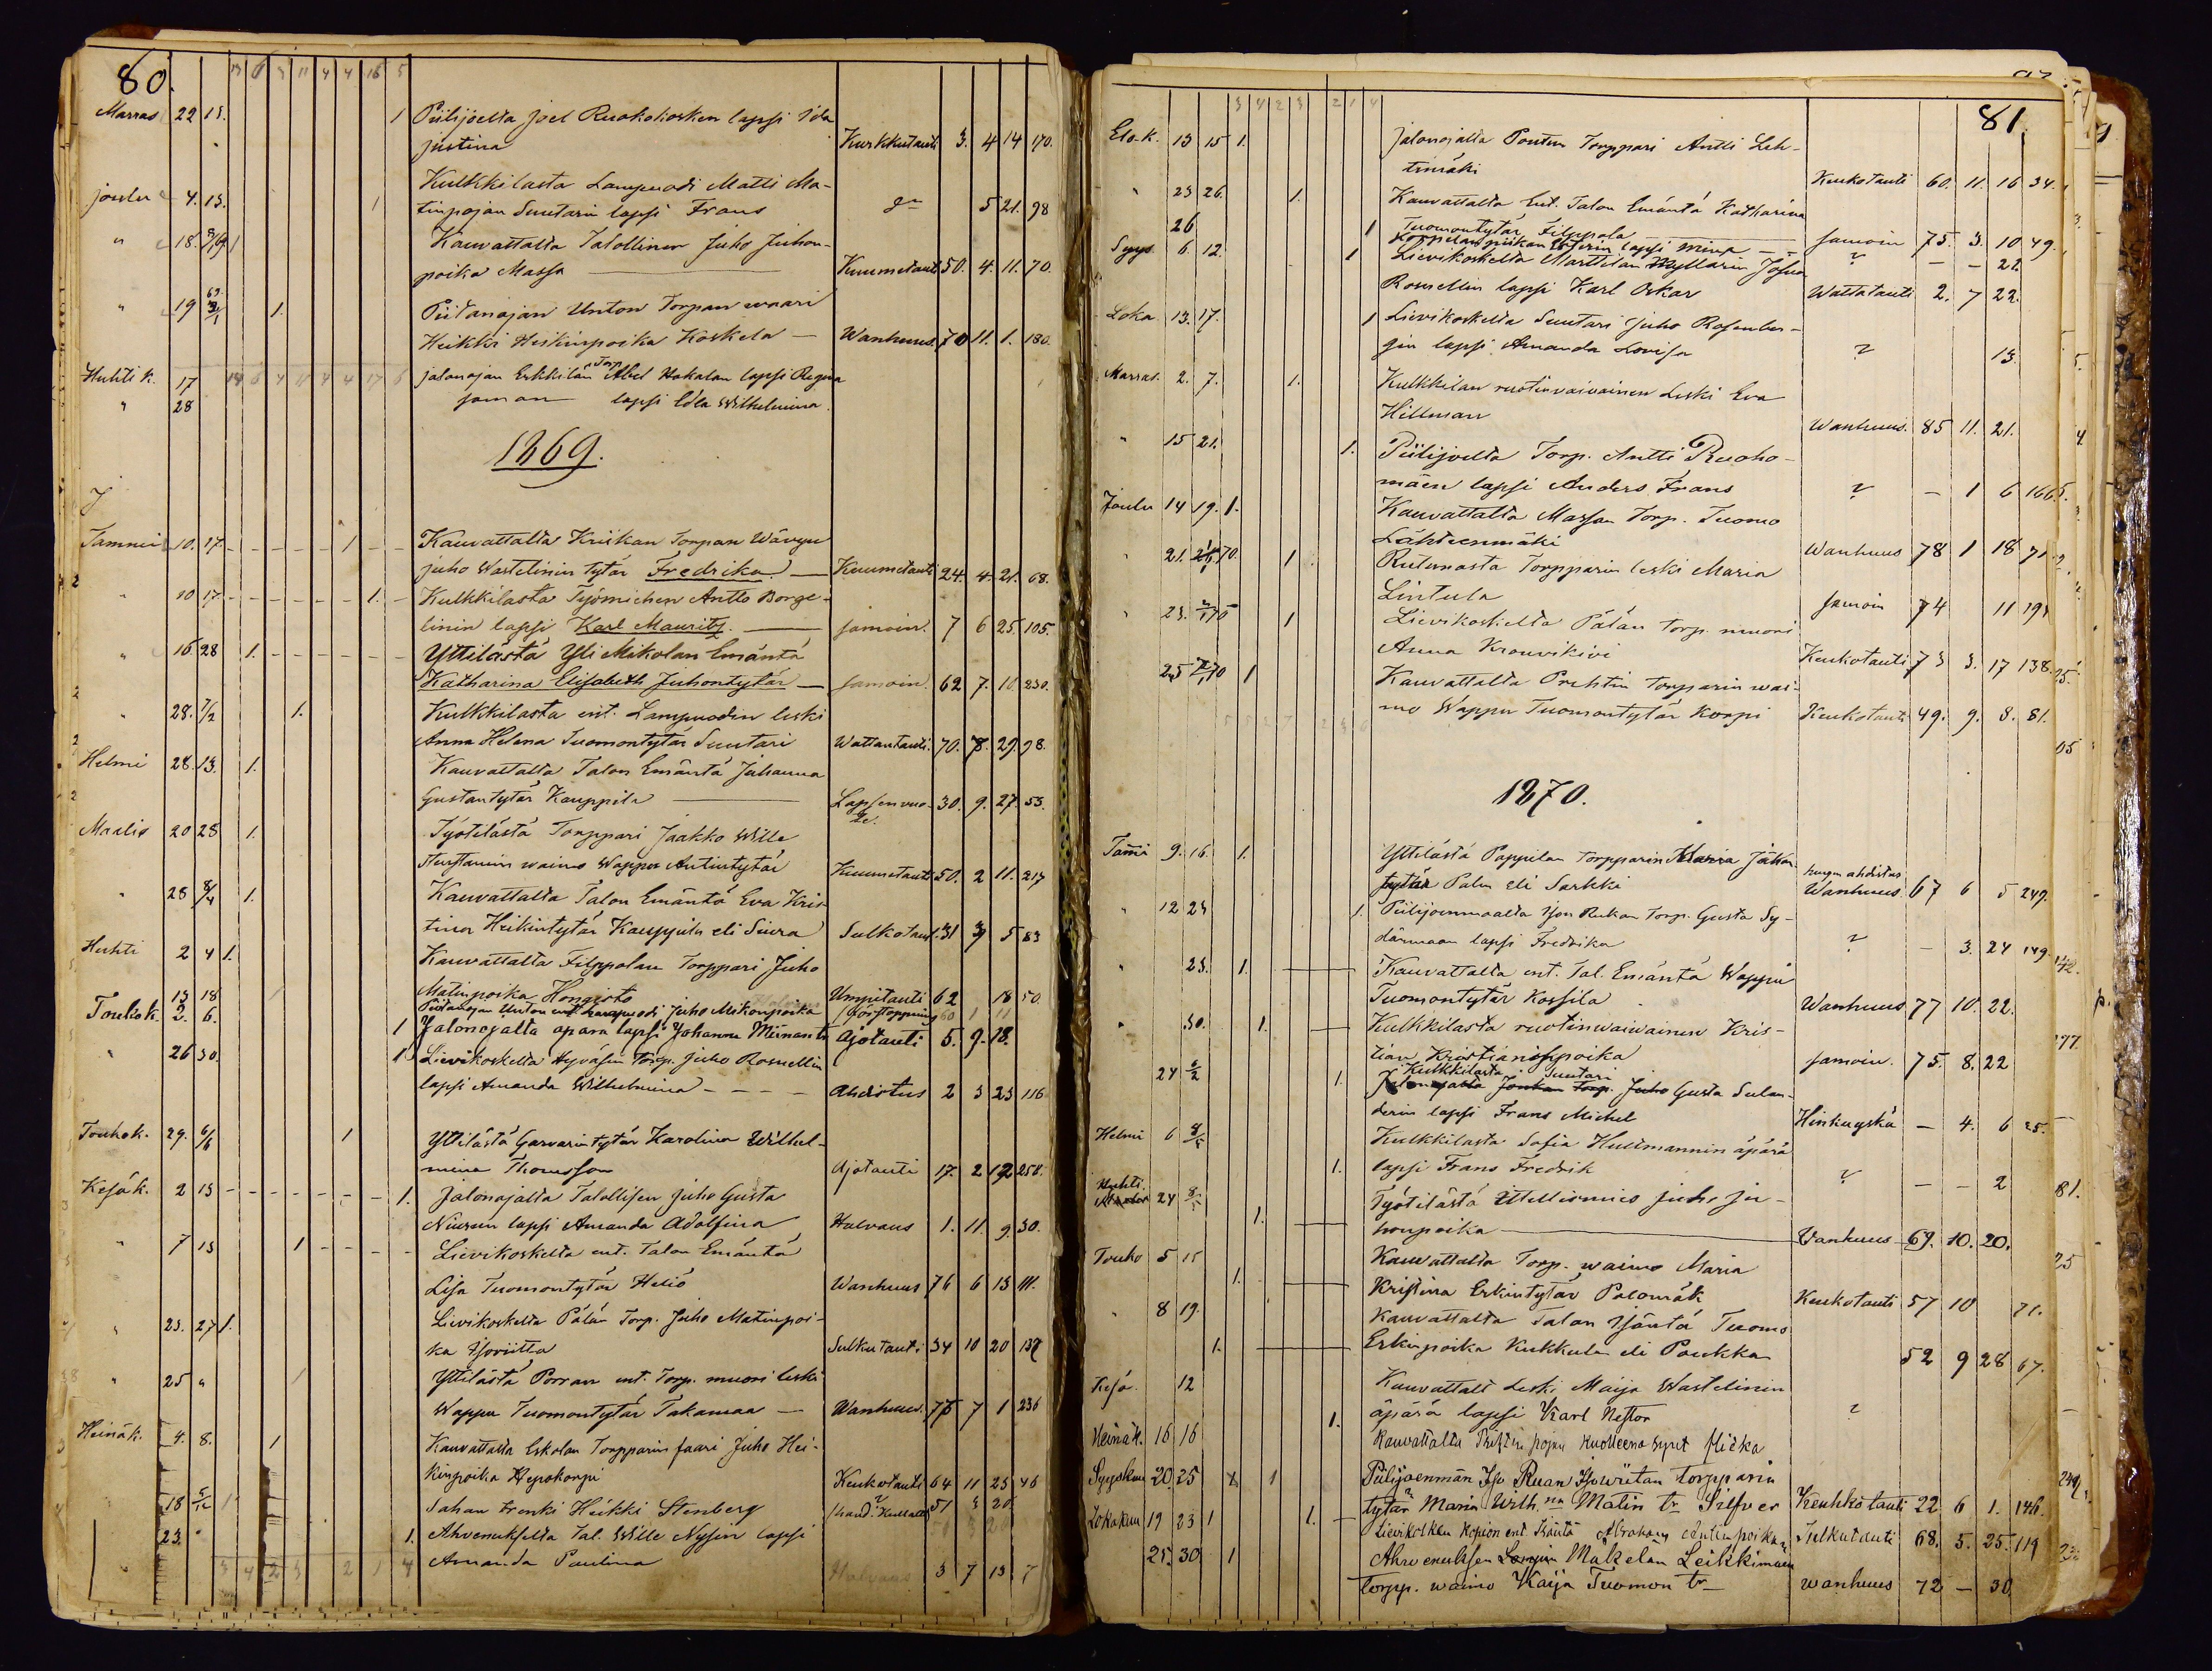 80.
13 6 3 11 4 4 16 5
Marras 22 15. 1 Piilijoelta Joel Ruohokosken lapsi Ida
justina Kurkkutauti 3. 4 14 170.
Kulkkilasta Lampuodi Matti Ma-
joulu 4. 13. 1 tinpojan Suutarin lapsi Frans 5 21. 98
" 18. 1 Kauvattalta Talollinen Juho Juhon-
poika Massa Kuumetauti 50. 4. 11. 70.
" 19 1. Piitanojan Unton Torpan waari
Heikki Heikinpoika Koskela — Wanhuus. 70 11. 1. 180.
Huhti k. 17 14 6 4 11 4 4 17 6 jalonojan Erkkilän Torp Abel Hakalan lapsi Regina
" 28 saman lapsi Eda Wilhelmina
1869.
Tammi 10. 17. 1 Kauvattalta Kriikan Torpan Wävyn
juho Wastelinin tytär Fredrika — Kuumetauti 24. 4. 21. 68.
" 10 17 1. Kulkkilasta Työmiehen Antto Borge-
linin lapsi Karl Mauritz. samoin. 7 6 25. 105.
" 16 28 1. Yttilästä Yli Mikolan Emäntä
Katharina Elisabeth Juhontytär — samoin. 62 7. 10. 230.
" 28. 7/2 1. Kulkkilasta ent. Lampuodin leski
Anna Helena Tuomontytär Suutari Wattantauti. 70. 8. 29. 98.
Helmi 28. 13. 1. Kauvattalta Talon Emäntä Johanna
Gustantytär Kauppila Lapsenvuo- 30. 9. 27. 53.
de.
Maalis 20 28 1. Työtilästä Torppari Jaakko Wille
waimo Wappu Antintytär Kuumetauti 50. 2 11. 217
" 28 8/4 1. Kauvattalta Talon Emäntä Eva Kris
tina Heikintytär Kauppila eli Siura Sulkutaut. 31 3 5 83
Huhti 2 4 1. Kauvattalta Filppolan Torppari Juho
Matinpoika Hongisto Umpitauti 62 18 50.
13 18 Piitanojan Unton ent Lampuodi Juho Mikonpoika förstoppning 60 1 11
Toukok. 2. 6. 1 Jalonojalta äpärä lapsi Johanna Ajotauti 5. 9. 18.
" 26 30. 1 Lievikoskelta Hyväsin Torp. Juho Rosnellin
lapsi Amanda Wilhelmina — — — Ahdistus 2 3 23 116
Toukok. 29. 6/6 1 Yttilästä Garvarintytär Karolina Wilhel-
mina Thomsson Ajotauti 17. 2 12 250.
Kesäk. 2 13 1. jalonojalta Talollisen Juho Gusta
lapsi Amanda Adolfina Halvaus 1. 11. 9 30.
" 7 13 1 Lievikoskelta ent. Talon Emäntä
Lisa Tuomontytär Heliö Wanhuus 76 6 13 111.
" 23. 27 1. Lievikoskelta Pälän Torp. Juho Matinpoi-
ka Isoviitta Sulkutauti 34 10 20 139
" 25 " 1 Yttilästä Porran ent. Torp. muori leski
Wappu Tuomontytär Takamaa — Wanhuus. 75 7 1 236
Heinäk. 4. 8. 1 Kauvattalta Eskolan Torpparin faari Juho Hei-
kinpoika Hepokorpi Keuhkotauti 64 11 23 46
18 1 Sahan trenki Heikki Stenberg 51 3 20
23. " 1. Ahvenukselta Tal. Wille Nysin lapsi
Amanda Paulina Halvaus 3 7 13 7
3 4 2 3 2 1 4
81.
3 4 2 3 2 1 4
Elo-k. 13 15 1. Jalonojalta Pontun Torppari Antti Leh-
timäki Keuhotauti 60. 11. 16 34.
" 23 26. 1. Kauvattalta Ent. Talon Emäntä Katharina
Tuomontytär Filppola samoin 75. 3. 10 49.
26 1 piikan Esterin lapsi Mina ? — — 21.
Syys. 6 12. 1 Lievikoskelta Marttilan Myllärin Josua
Rosnellin lapsi Karl Oskar Wattatauti 2. 7 22.
Loka 13. 17. 1 Lievikoskelta Suutari Juho Rosenber-
gin lapsi Amanda Lovisa ? 13.
Marras. 2. 7. 1. Kulkkilan ruotinvaivainen Leski Eva
Hillman Wanhuus. 85 11. 21.
" 15 21. 1. Piilijoelta Torp. Antti Ruoho-
mäen lapsi Anders Frans ? — 1 6 166.
Joulu 14 19. 1. Kauvattalta Massan Torp. Tuomo
Lähteenmäki Wanhuus 78 1 18 71
" 21. 70. 1 Ritunasta Torpparin leski Maria
Lintula samoin 74 11 191
" 23. 70 1 Lievikoskelta Pälän Torp. muori
Anna Krouvikivi Keuhotauti 73 3. 17 138.
25 70 1 Kauvattalta Prehtin Torpparin wai-
mo Wappu Tuomontytär Korpi Keuhotauti 49. 9. 8. 81.
1870.
Tami 9. 16. 1. Yttilästä Pappilan Torpparin Maria Juhon
tytär Palm eli Sarkki hengen ahdistus Wanhuus. 67 6 5 249.
" 12 23 1. Piilijoenmaalta Ison Rukan Torp. Gusta Sy-
dänmaan lapsi Fredrika ? — 3. 24 149
" 23. 1. Kauvattalta ent. Tal. Emäntä Wappu
Tuomontytär Kossila Wanhuus 77 10. 22.
" 30. 1. Kulkkilasta ruotinwaiwainen Kris-
tian Kristianinpoika samoin. 75. 8. 22
Kulkkilasta Suutari
24 6/2 1. Jalonojalta Jonkan Torp. Juho Gusta Sulan-
derin lapsi Frans Michel Hinkuyskä — 4. 6 25.
Helmi 6 Kulkkilasta Sofia Hultmannin äpärä
1. lapsi Frans Fredrik ? — — 2
Huhti. 24 8/5 1. Työtilästä Itsellismies Juho Ju-
honpoika Wanhuus 69. 10. 20.
Touko 5 15 Kauvattalta Torp. waimo Maria
1. Kristina Erkintytär Palomäk Keuhotauti 57 10 71.
" 8 19. Kauvattalta Talon Isäntä Tuomo
1. Erkinpoika Kukkula eli Paukka 52 9 28 67.
Kesä. 12 Kauvattalt Leski Maija Wastelinin
1. äpärä lapsi Karl Nestor ?
Heinäk. 16 16 Kauvattalta pojan kuolleena synt flicka
Syyskuu 20 25 1 Piilijoenmän Iso Ruan Isowiitan torpparin
tytär Maria Wilh. na Matin tr Silfver Keuhkotauti 22 6 1. 146.
Lokakuu 19 23 1 1. Lievikosken Kopion ent Isäntä Abraham Antinpoika Sulkutauti 68. 5. 25. 119
25. 30 1 Ahvenuksen Mäkelän Leikkimäen
torpp. waimo Kaija Tuomon tr wanhuus 72 — 30.